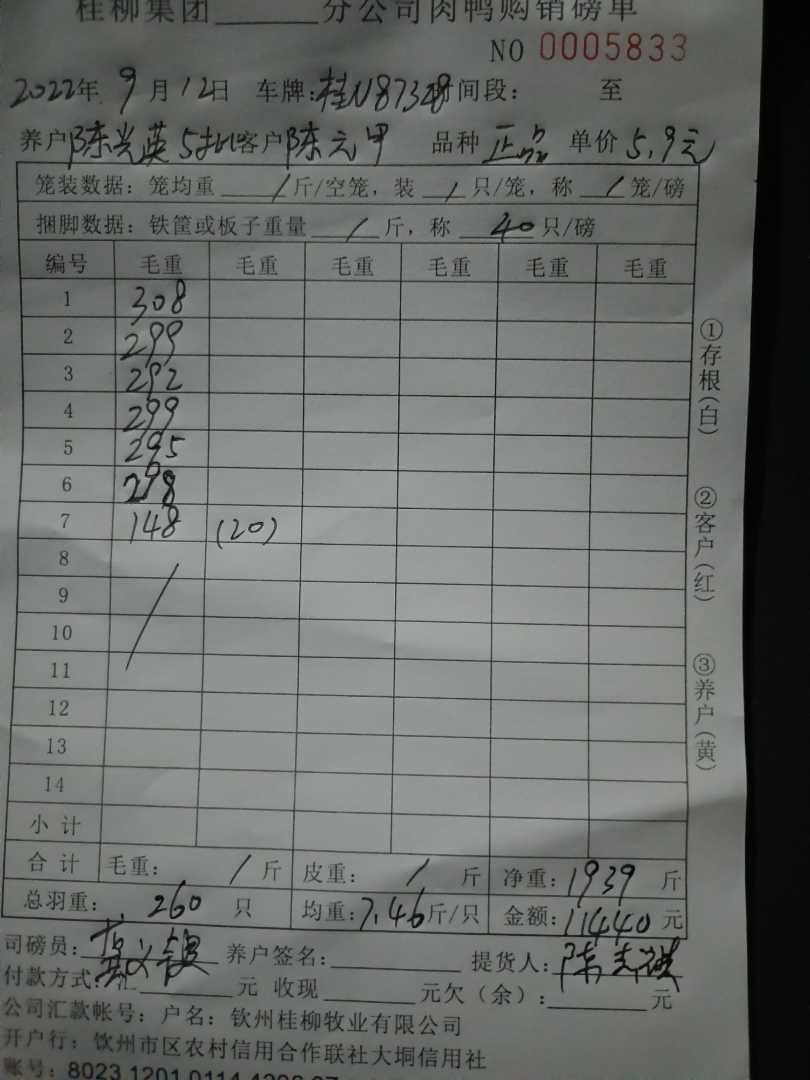 桂柳集团______分公司肉鸭购销磅单
NO 0005833
2022年 9月12日 车牌:桂N8732 时间段: 至
养户 陈光英5批 客户 陈元甲 品种 正品 单价 5.9元
笼装数据: 笼均重 / 斤/空笼, 装 / 只/笼, 称 / 笼/磅
捆脚数据: 铁筐或板子重量 / 斤, 称 40 只/磅
编号 毛重 毛重 毛重 毛重 毛重 毛重
1 308
2 299
3 292
4 299
5 295
6 298
7 148 (20)
8
9
10
11
12
13
14
小计
合计 毛重: / 斤 皮重: / 斤 净重: 1939 斤
总羽重: 260 只 均重: 7.46 斤/只 金额: 11440 元
司磅员: 养户签名: 提货人: 陈
付款方式: 汇______元 收现______元欠(余):______元
公司汇款帐号: 户名: 钦州桂柳牧业有限公司
开户行: 钦州市区农村信用合作联社大垌信用社
账号: 8023 1201 0114
①存根(白) ②客户(红) ③养户(黄)